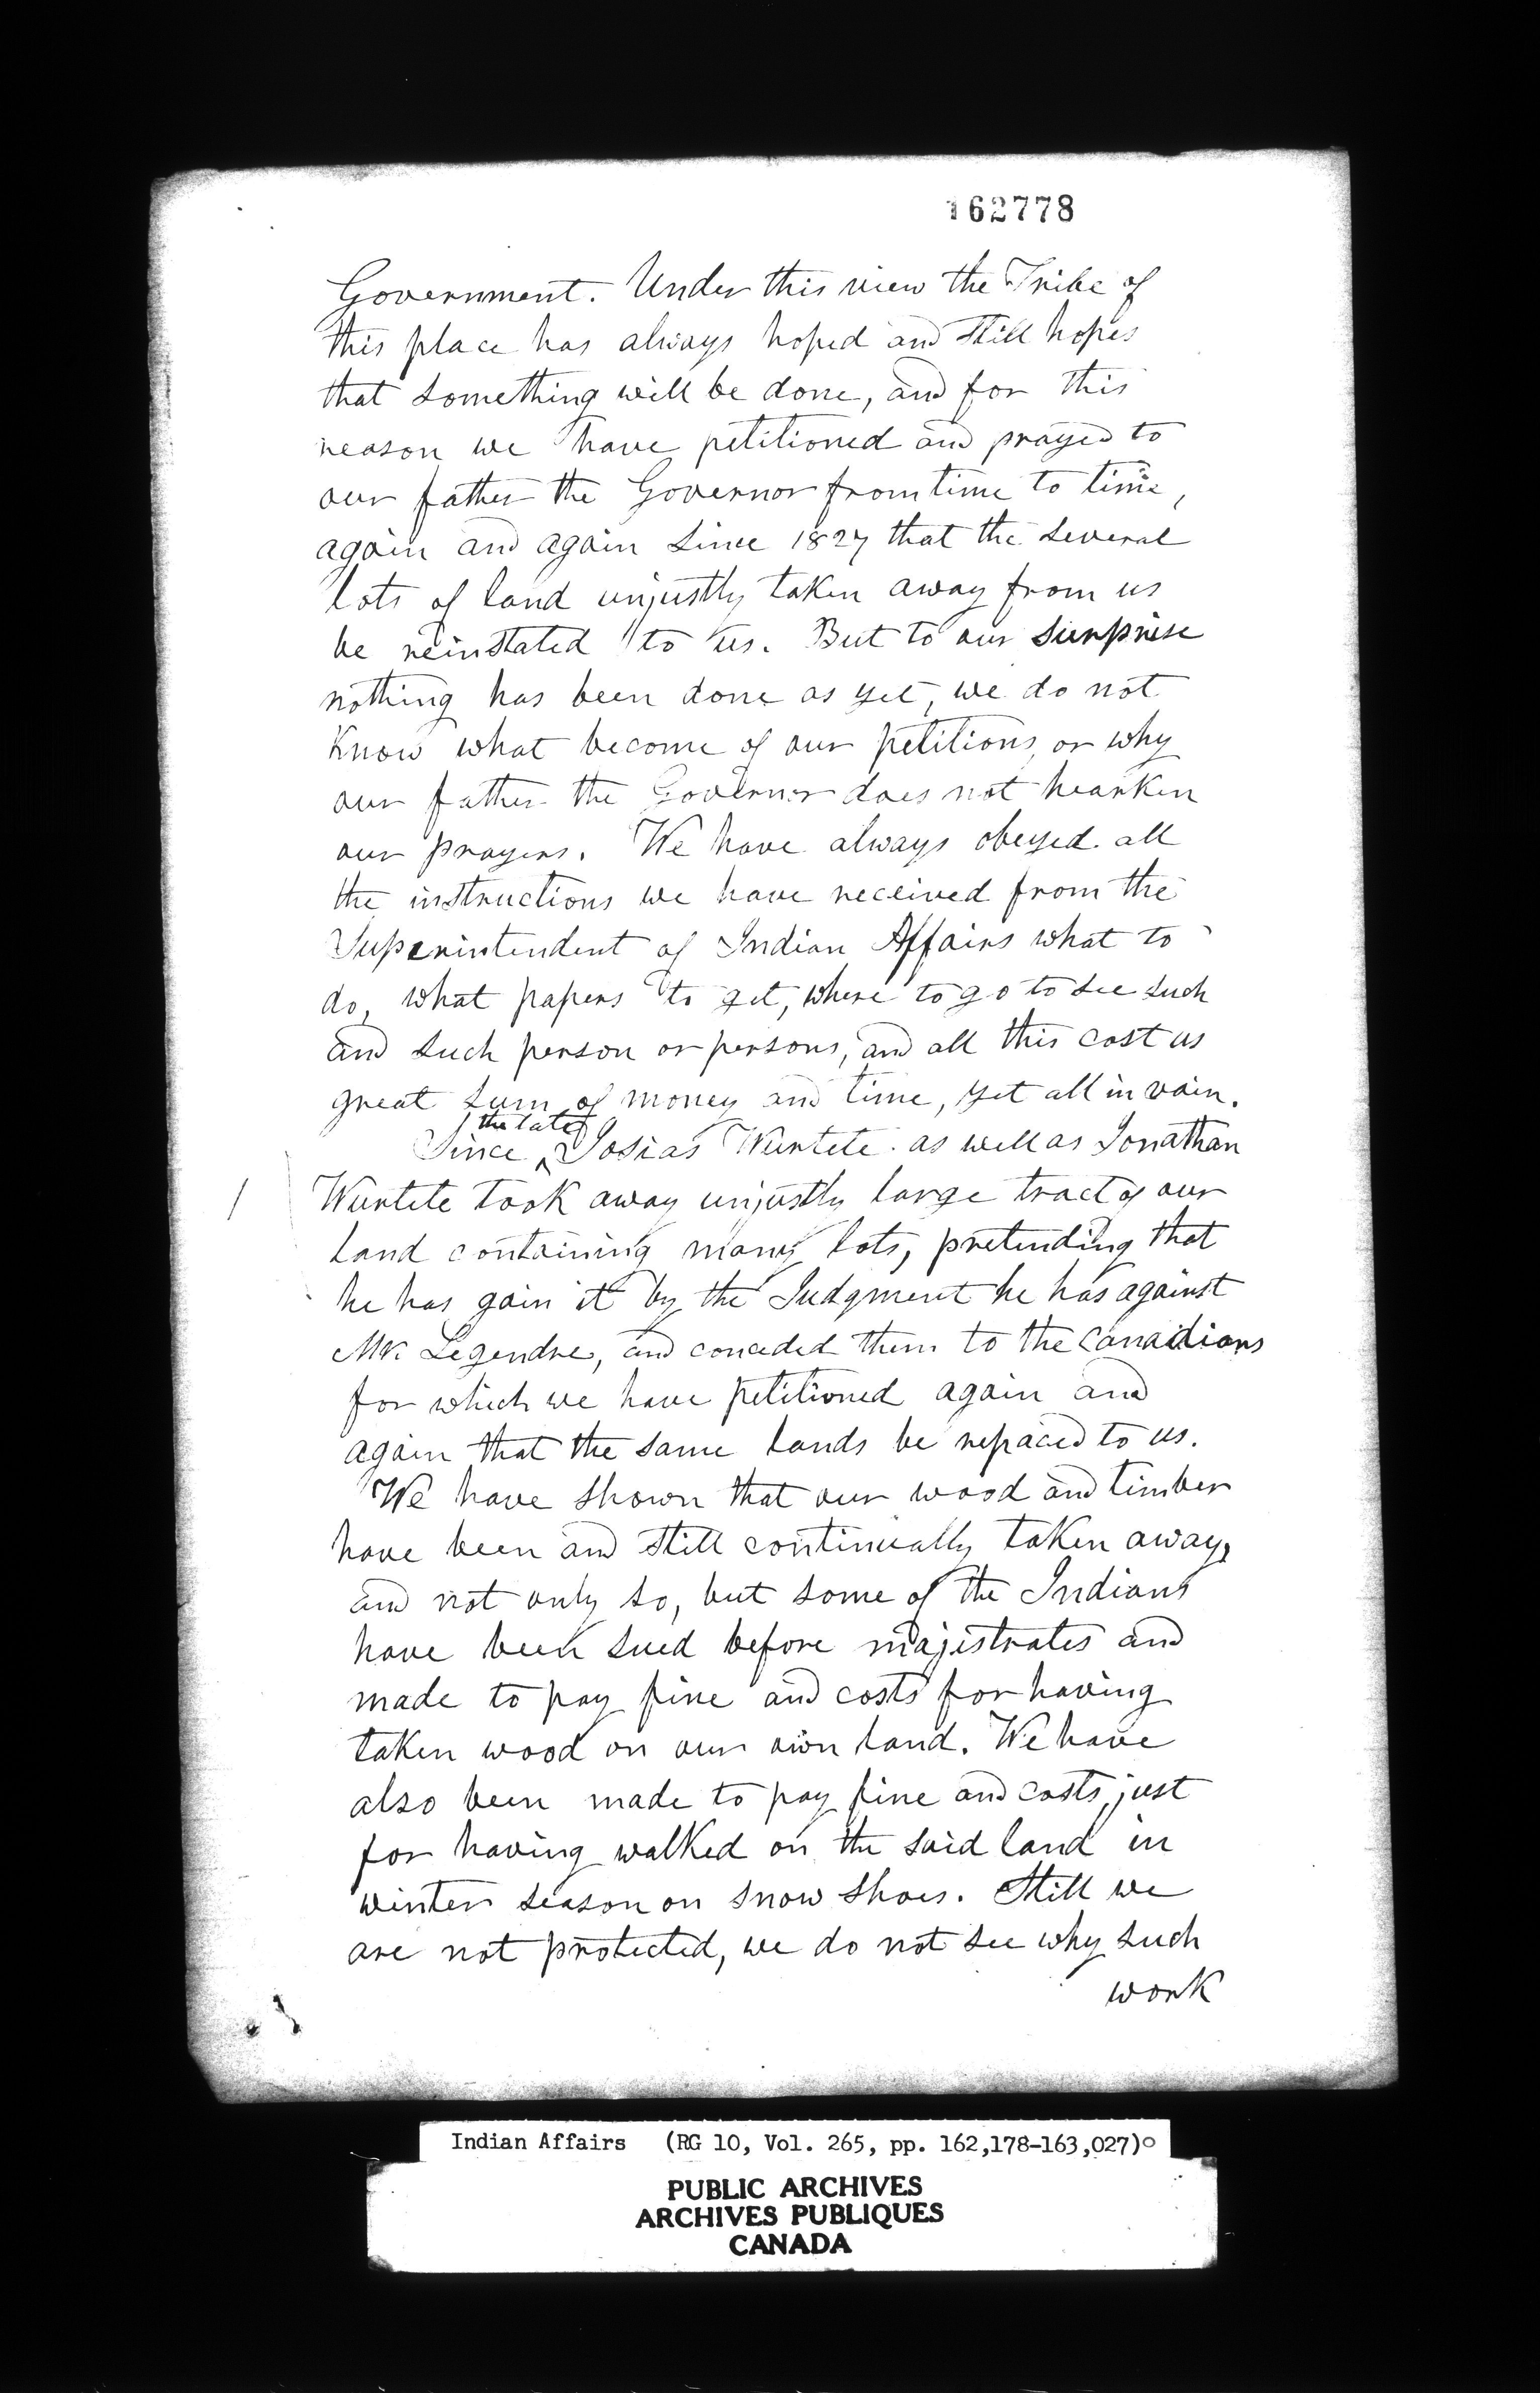 162778
Government. Under this view the Tribe of
this place has always hoped and still hopes
that something will be done, and for this
reason we have petitioned and prayed to
our father the Governor from time to time,
again and again since 1827 that the several
lots of land unjustly taken away from us
be reinstated to us. But to our surprise
nothing has been done as yet, we do not
know what become of our petitions, or why
our father the Governor does not hearken
our prayers. We have always obeyed all
the instructions we have received from the
Superintendent of Indian Affairs what to
do, what papers to get, where to go to see such
and such person or persons, and all this cost us
great sum of money and time, yet all in vain.
the late
Since ^ Josias Wurtete as well as Jonathan
/ Wurtete took away unjustly large tract of our
land containing many lots, pretending that
he has gain it by the Judgment he has against
Mr. Legendre, and conceded them to the Canadians
for which we have petitioned again and
again that the same lands be repaced to us.
We have shown that our wood and timber
have been and still continually taken away,
and not only so, but some of the Indians
have been sued before majestrates and
made to pay fine and costs for having
taken wood on our own land. We have
also been made to pay fine and costs, just
for having walked on the said land in
winter season on snow shoes. Still we
are not protected, we do not see why such
work
Indian Affairs (RG 10, Vol. 265, pp. 162,178-163,027)
PUBLIC ARCHIVES
ARCHIVES PUBLIQUES
CANADA